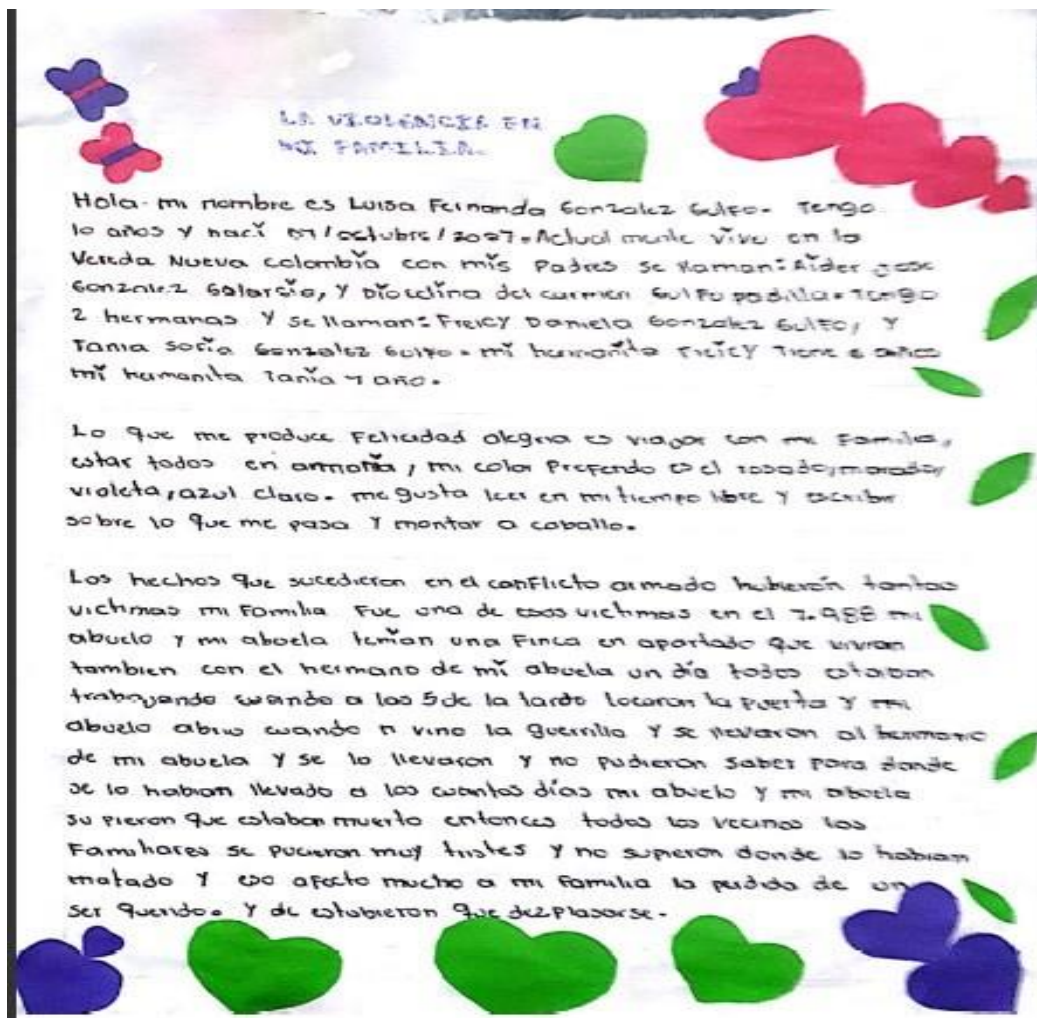 LA VIOLENCIA EN
MI FAMILIA.
Hola mi nombre es Luisa Fernanda Gonzalez Gulfo. Tengo
10 años y nací 07/octubre/2007. Actual mente vivo en la
Vereda Nueva colombia con mis Padres se llaman: Aider jose
Gonzalez Galarsio, y Diocelina del carmen Gulfo padilla. Tengo
2 hermanas Y se llaman: Freicy Daniela Gonzalez Gulfo, Y
Tania Sofia Gonzalez Gulfo. mi hermanita Freicy Tiene 6 años
mi hermanita Tania 1 año.
Lo que me produce Felicidad alegria es viajar con mi Familia,
estar todos en armonia, mi color Preferido es el rosado, morado,
violeta, azul claro. me gusta leer en mi tiempo libre Y escribir
sobre lo que me pasa Y montar a caballo.
Los hechos que sucedieron en el conflicto armado hubieron tantas
victimas mi Familia Fue una de esas victimas en el 1.988 mi
abuelo y mi abuela tenian una Finca en apartado que vivian
tambien con el hermano de mi abuela un día todos estaban
trabajando cuando a las 5 de la tarde tocaron la puerta Y mi
abuelo abrio cuando vino la guerrilla Y se llevaron al hermano
de mi abuela Y se lo llevaron y no pudieron saber para donde
se lo habian llevado a los cuantos días mi abuelo Y mi abuela
supieron que estaban muerto entonces todos los vecinos los
Familiares se pucieron muy tristes Y no supieron donde lo habian
matado Y eso afecto mucho a mi familia la perdida de un
ser querido. Y de estubieron que dezplasarse.